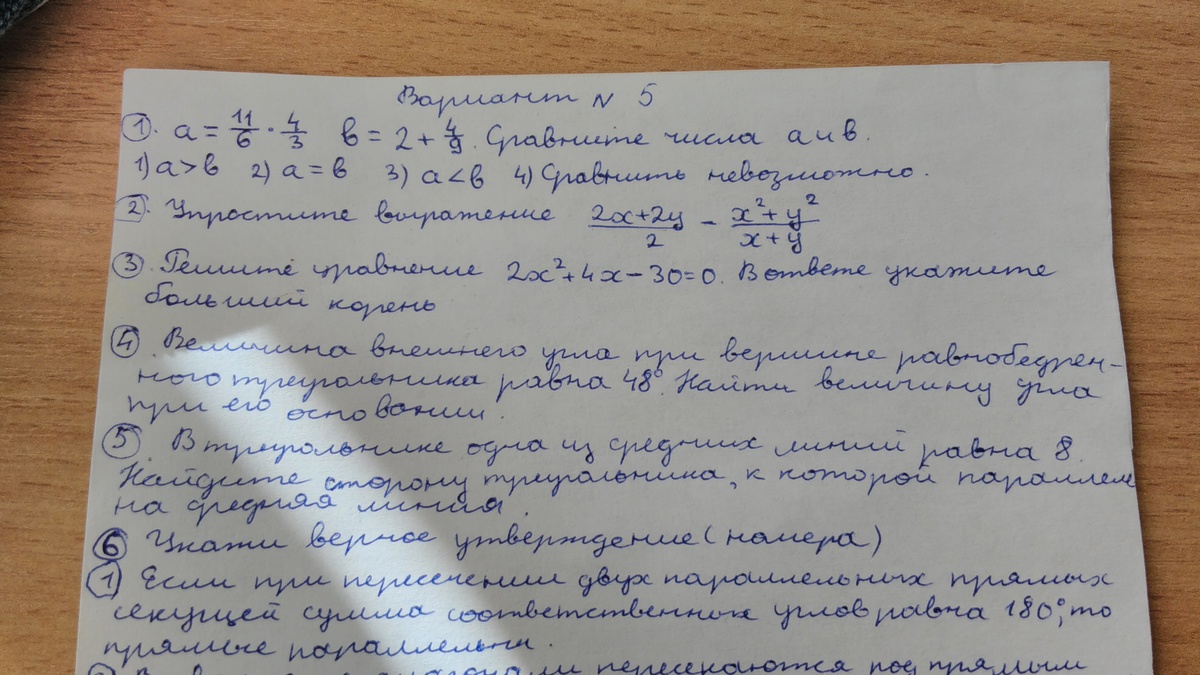 Вариант N 5
① a = 11/6 · 4/3 b = 2 + 4/9. Сравните числа a и b.
1) a > b 2) a = b 3) a < b 4) Сравнить невозможно.
②. Упростите выражение (2x+2y)/2 − (x²+y²)/(x+y)
③. Решите уравнение 2x²+4x−30=0. В ответе укажите
больший корень
④. Величина внешнего угла при вершине равнобедрен-
ного треугольника равна 48°. Найти величину угла
при его основании.
⑤. В треугольнике одна из средних линий равна 8.
Найдите сторону треугольника, к которой параллель
на средняя линия.
⑥ Укажи верное утверждение (номера)
① Если при пересечении двух параллельных прямых
секущей сумма соответственных углов равна 180°, то
прямые параллельны.
пересекаются под прямым